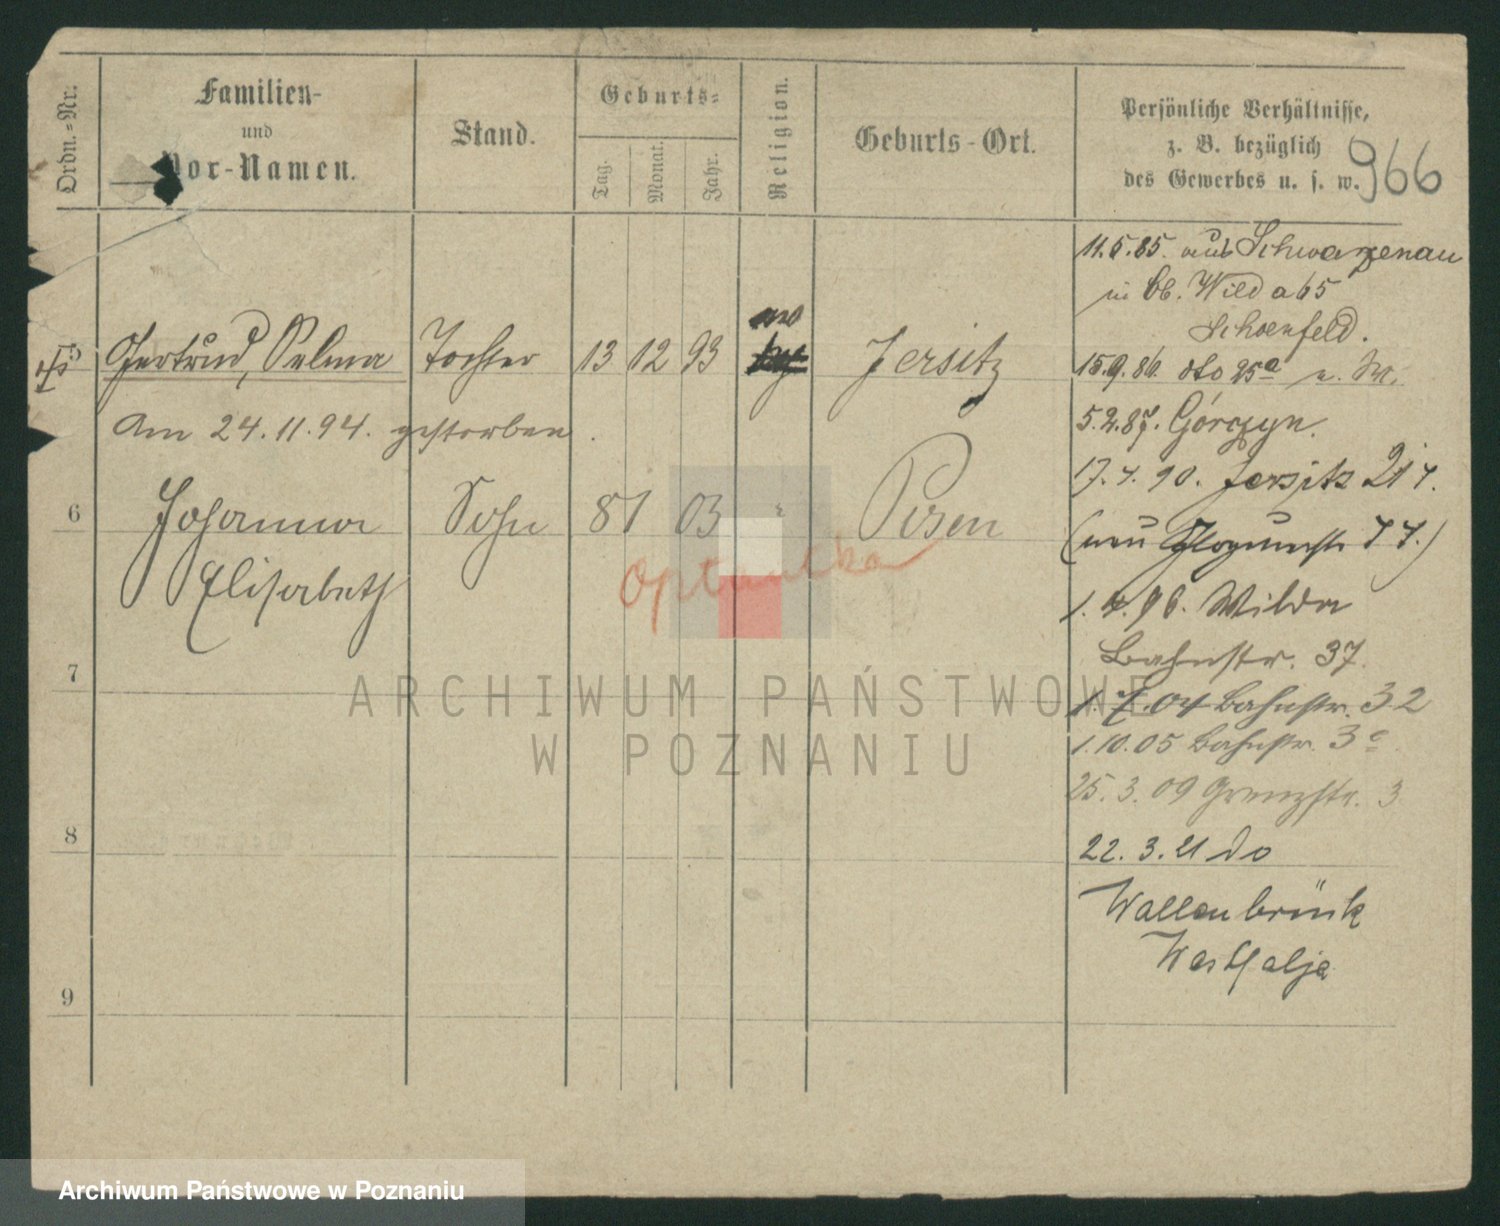 Ordn.=Nr.
Familien-
und
Vor-Namen.
Stand.
Geburts=
Tag.
Monat.
Jahr.
Religion.
Geburts-Ort.
Persönliche Verhältnisse,
z. B. bezüglich
des Gewerbes u. s. w.
966
11.5.85. aus Schwarzenau
in Wilda 65
Schoenfeld.
5 Gertrud, Selma Tochter 13 12 93 Jersitz
15.9.86. dto 25a
Am 24.11.94. gestorben.
5.2.87. Górczyn.
17.4.90. Jersitz
6 Johanna Sohn 8 1 03 Posen
Elisabeth
Optantka
(neu
1.4.96. Wilda
Bahnstr. 37.
7
1.7.04 Bahnstr. 32
1.10.05 Bahnstr. 3c
25.3.09 Grenzstr. 3
8
22.3.21 do
Wallenbrück
Westfalja
9
ARCHIWUM PAŃSTWOWE
W POZNANIU
Archiwum Państwowe w Poznaniu